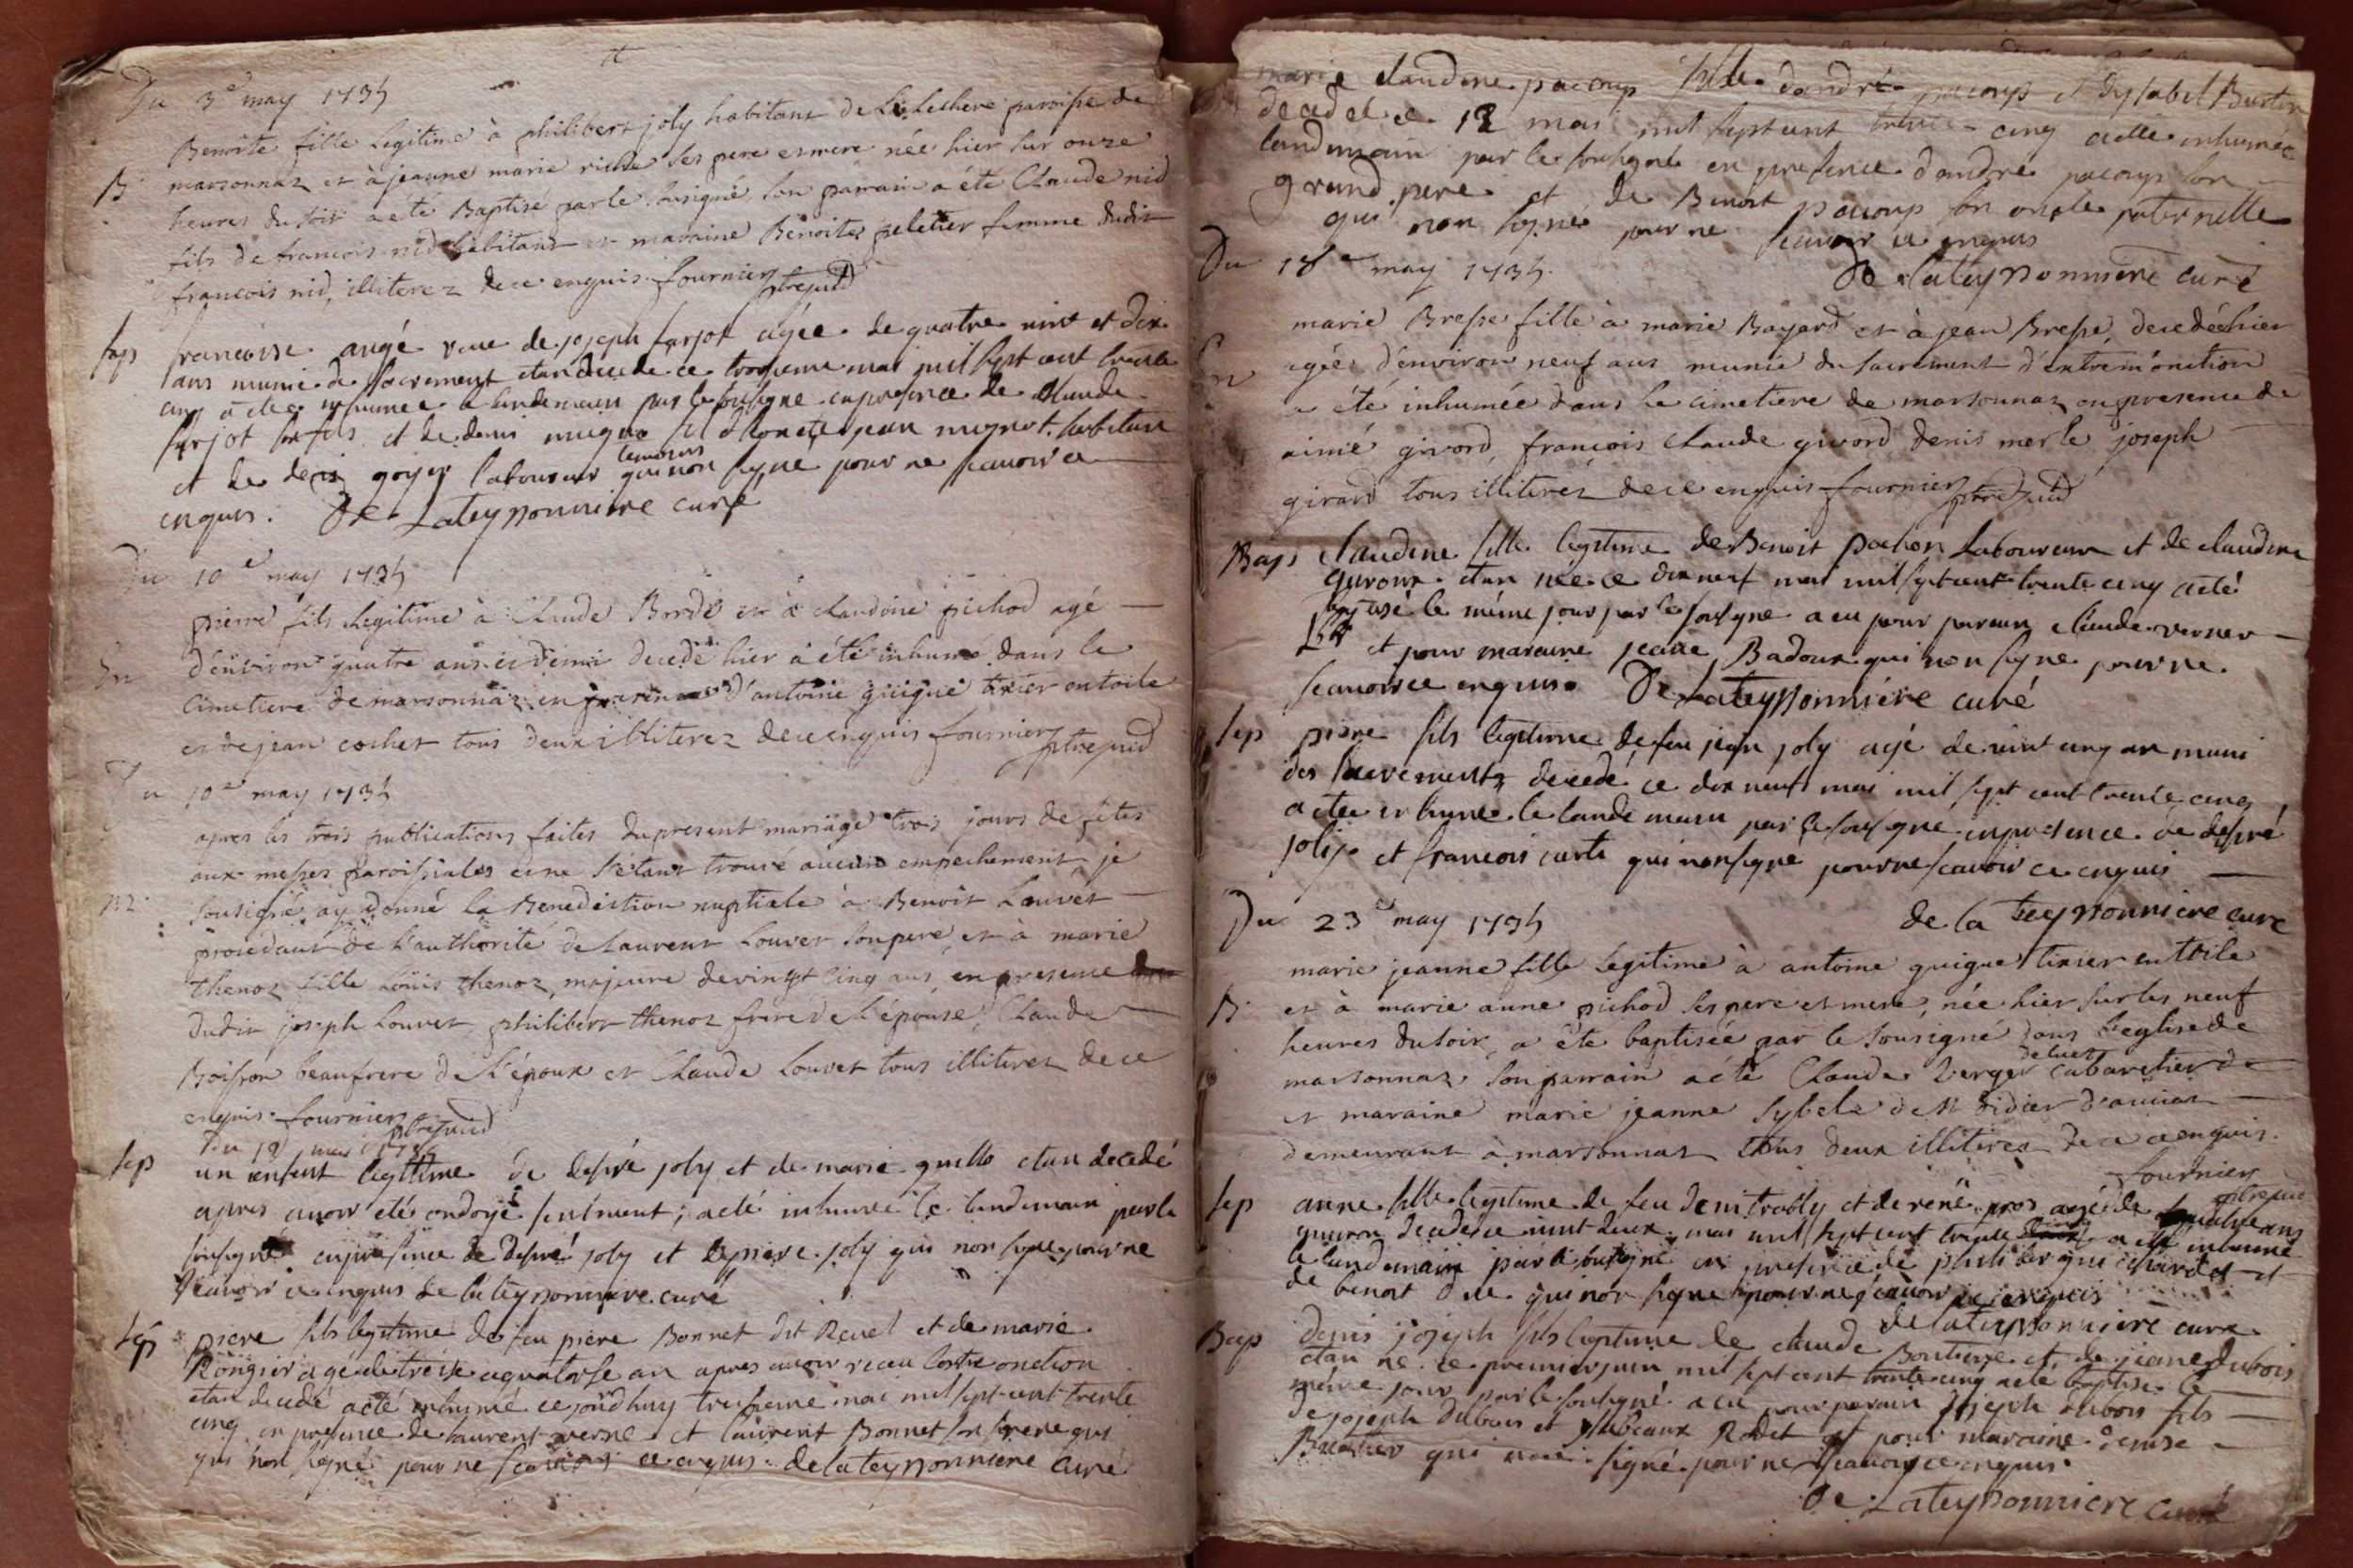 Du 3e may 1735
Benoite fille legitime à philibert joly habitant de paroisse de
B marsonnaz et à jeanne marie ses pere et mere née hier sur onze
heures du soir a été Baptise par le sousigné, son parrain a été Claude nid
fils de francois nid habitant et maraine Benoite peletier femme dudit
francois nid, illiterez de ce enquis fournier
sep francoise augé de joseph farjot agée de quatre vint et dix
ans munie de sacrement etan decede ce troisieme mai mil sept cent trente
cinq a étée inhumee le lendemain par le sousigne en presence de Claude
farjot son fils et de denis jean mignot habitant
et de denis goyer laboureur temoins qui non signe pour ne scauoir ce
enquis. De Lateyssonniere curé
Du 10e may 1735
pierre fils legitime à Claude Bordé et à claudine pichod agé
In d'environ quatre ans et demi decedé hier a été inhumé dans le
Cimetiere de marsonnaz en presence d'antoine guigue tixier en toile
et de jean cochet tous deux illiterez de ce enquis fournier
Du 10e may 1735
apres les trois publications faites du present mariage trois jours de fêtes
aux messes paroissiales et ne s'etant trouvé aucun empechement je
M sousigné ay donné la Benediction nuptiale à Benoit Louvet
procedant de l'authorité de Laurent Louvet son pere, et à marie
thenoz fille Loüis thenoz, majeure de vingt cinq ans, en presence
dudit joseph Louvet, philibert thenoz frere de l'épouse, Claude
Boisson beaufrere de l'époux et Claude Louvet tous illiterez de ce
enquis. fournier
Du 12 mai
sep un enfent legitime de desiré joly et de marie etan decedé
apres auoir été ondoyé seulment; a cté inhumé le lendemain par le
sousigné en presence de desiré joly et de piere joly qui non signe pour ne
scauoir ce enquis de lateyssonniere curé
sep piere fils legitime de feu piere Bonnet dit Revel et de marie
agé de treise a quatorse an apres auoir receu lextre onction
etan decedé a cté inhumé ce jourdhuy tresieme mai mil sept cent trente
cinq en presence de laurent verne et laurent Bonnet son frere qui
qui non signé pour ne scauoir ce enquis. de lateyssonniere curé
marie claudine pacoup fille dandré pacoup et dysabel
decedée ce 12 mai mil sept cent trente cinq a été inhumée
lendemain par le sousigné en presence dandré pacoup son
grand pere et de Benoit pacoup son oncle paternelle
qui non signé pour ne scauoir ce enquis
De Lateyssonniere curé
Du 18e may 1735
marie Bresse fille à marie Bayard et à jean Bresse, decedé hier
In agée d'environ neuf ans munie du sacrement d'extremonction
a été inhumée dans le cimetiere de marsonnaz en presence de
aimé givord, françois Claude givord, denis merle joseph
girard tous illiterez de ce enquis fournier
Bap claudine fille legitime de Benoit pochon Laboureur et de claudine
guroux etan née ce dix neuf mai mil sept cent trente cinq a été
baptisé le même jour par le sousigne a eu pour parain claude verner
et pour maraine jeane Badoux qui non signe pour ne
scauoir ce enquis. De Lateyssonniere curé
sep piere fils legitime de feu jean joly agé de vint cinq an muni
des sacrements decedé ce dix neuf mai mil sept cent trente cinq
a été inhume le lendemain par le sousigne en presence de desiré
joly et francois curte qui non signe pour ne scauoir ce enquis
de la teyssonniere curé
Du 23e may 1735
marie jeanne fille legitime à antoine guigue tixier en toile
B et à marie anne pichod ses pere et mere, née hier sur les neuf
heures du soir, a été baptisée par le sousigné dans l'eglise de
marsonnaz, son parrain a été Claude Verger cabaretier de
et maraine marie jeanne de St didier
demeurant à marsonnaz tous deux illiterez de ce enquis.
fournier
sep anne fille legitime de feu deni trably et de rené pros agé de quatre ans
decedé ce vint deux mai mil sept cent trente a été inhumé
le lendemain par le sousigné en presence de et
de benoit qui non signe pour ne scauoir ce enquis
de lateyssonniere curé
Bap denis joseph fils legitime de claude et de jeane dubois
etan ne ce premier juin mil sept cent trente cinq a été baptise le
même jour par le sousigné a eu pour parain joseph dubois fils
de joseph dubois et ysabeaux Rodet et pour maraine denise
qui non signé pour ne scauoir ce enquis
De Lateyssonniere curé